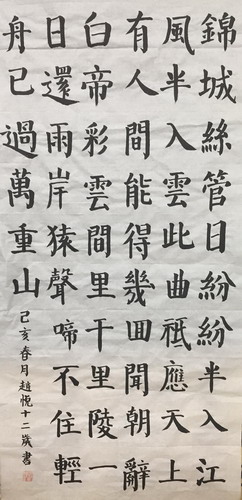 錦城絲管日紛紛半入江
風半入雲此曲祗應天上
有人間能得幾囬聞朝辭
白帝彩雲間里千里陵一
日還雨岸猿聲啼不住輕
舟已過萬重山
己亥春月趙悅十二歲書